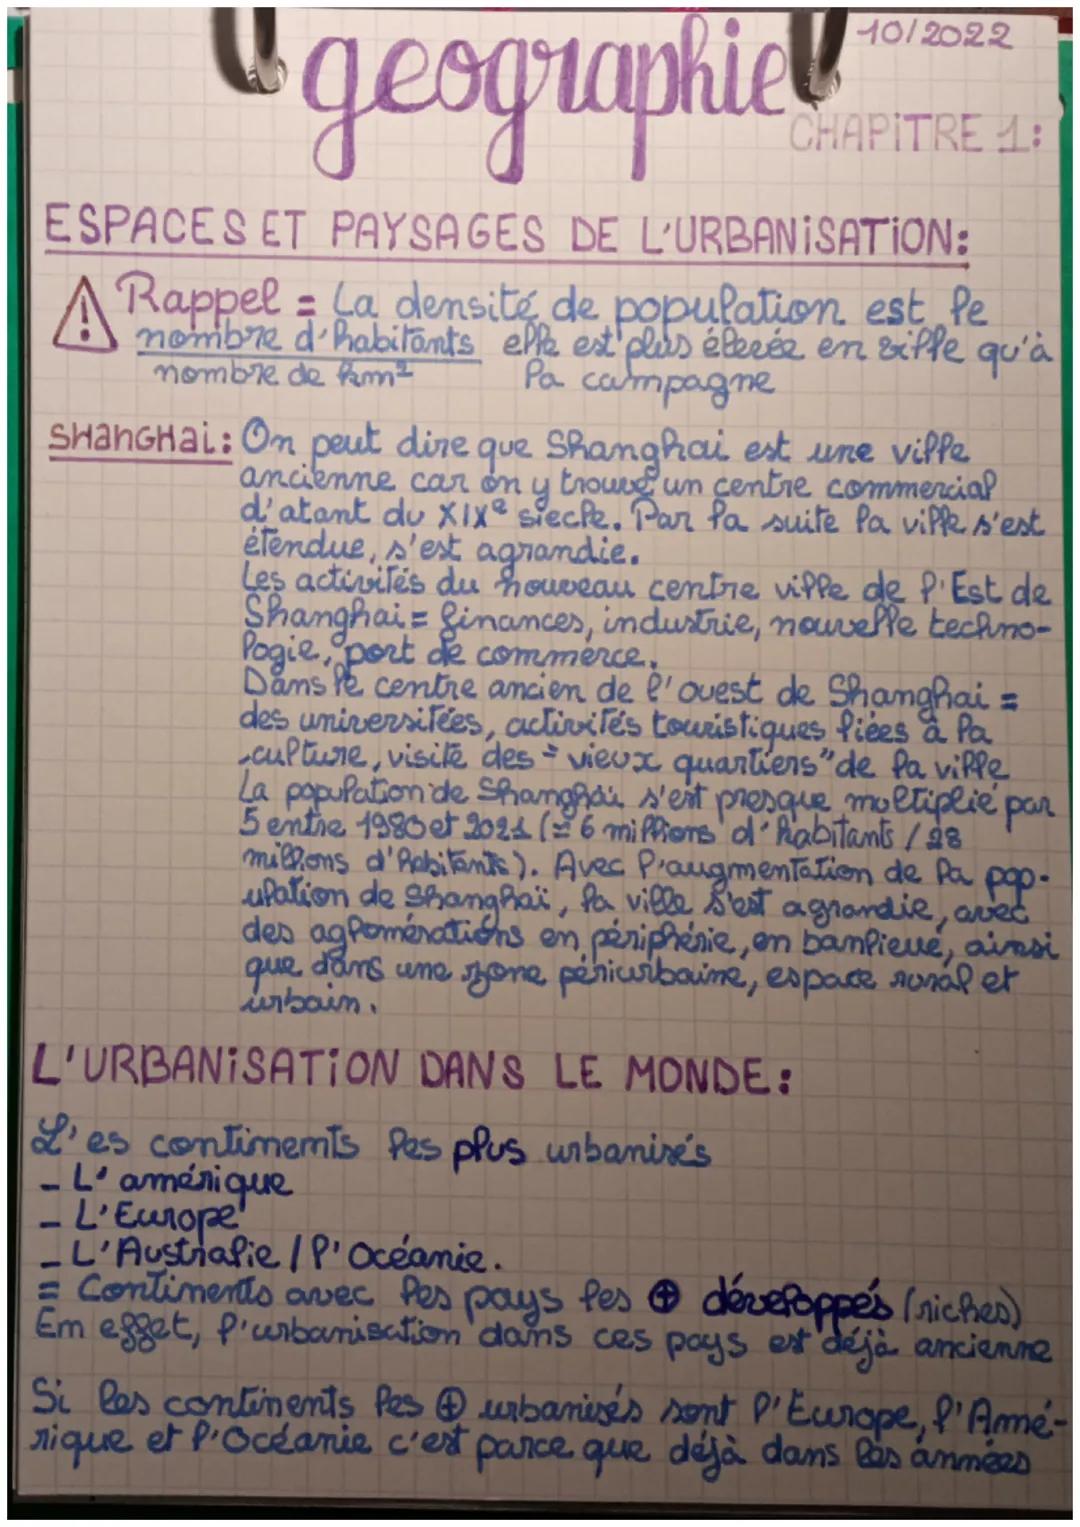 geographie
10/2022
CHAPITRE 1:
ESPACES ET PAYSAGES DE L'URBANISATION:
⚠ Rappel = La densité de population est le
nombre d'habitants elle est plus élevée en ville qu'à
nombre de km² la campagne
SHANGHAI: On peut dire que Shanghai est une ville
ancienne car on y trouve un centre commercial
d'atant du XIXe siecle. Par la suite la ville s'est
étendue, s'est agrandie.
Les activités du nouveau centre ville de l'Est de
Shanghai = finances, industrie, nouvelle techno-
logie, port de commerce.
Dans le centre ancien de l'ouest de Shanghai =
des universitées, activités touristiques liées à la
culture, visite des "vieux quartiers" de la ville
La population de Shanghai s'est presque multiplié par
5 entre 1980 et 2021 (= 6 millions d'habitants / 28
millions d'habitants). Avec l'augmentation de la pop-
ulation de Shanghaï, la ville s'est agrandie, avec
des agglomérations en périphérie, en banlieue, ainsi
que dans une zone périurbaine, espace rural et
urbain.
L'URBANISATION DANS LE MONDE:
L'es continents les plus urbanisés
- L'amérique
- L'Europe
- L'Australie / l'Océanie.
= Continents avec les pays les ⊕ développés (riches)
En effet, l'urbanisation dans ces pays est déjà ancienne
Si les continents les ⊕ urbanisés sont l'Europe, l'Amé-
rique et l'Océanie c'est parce que déjà dans les années